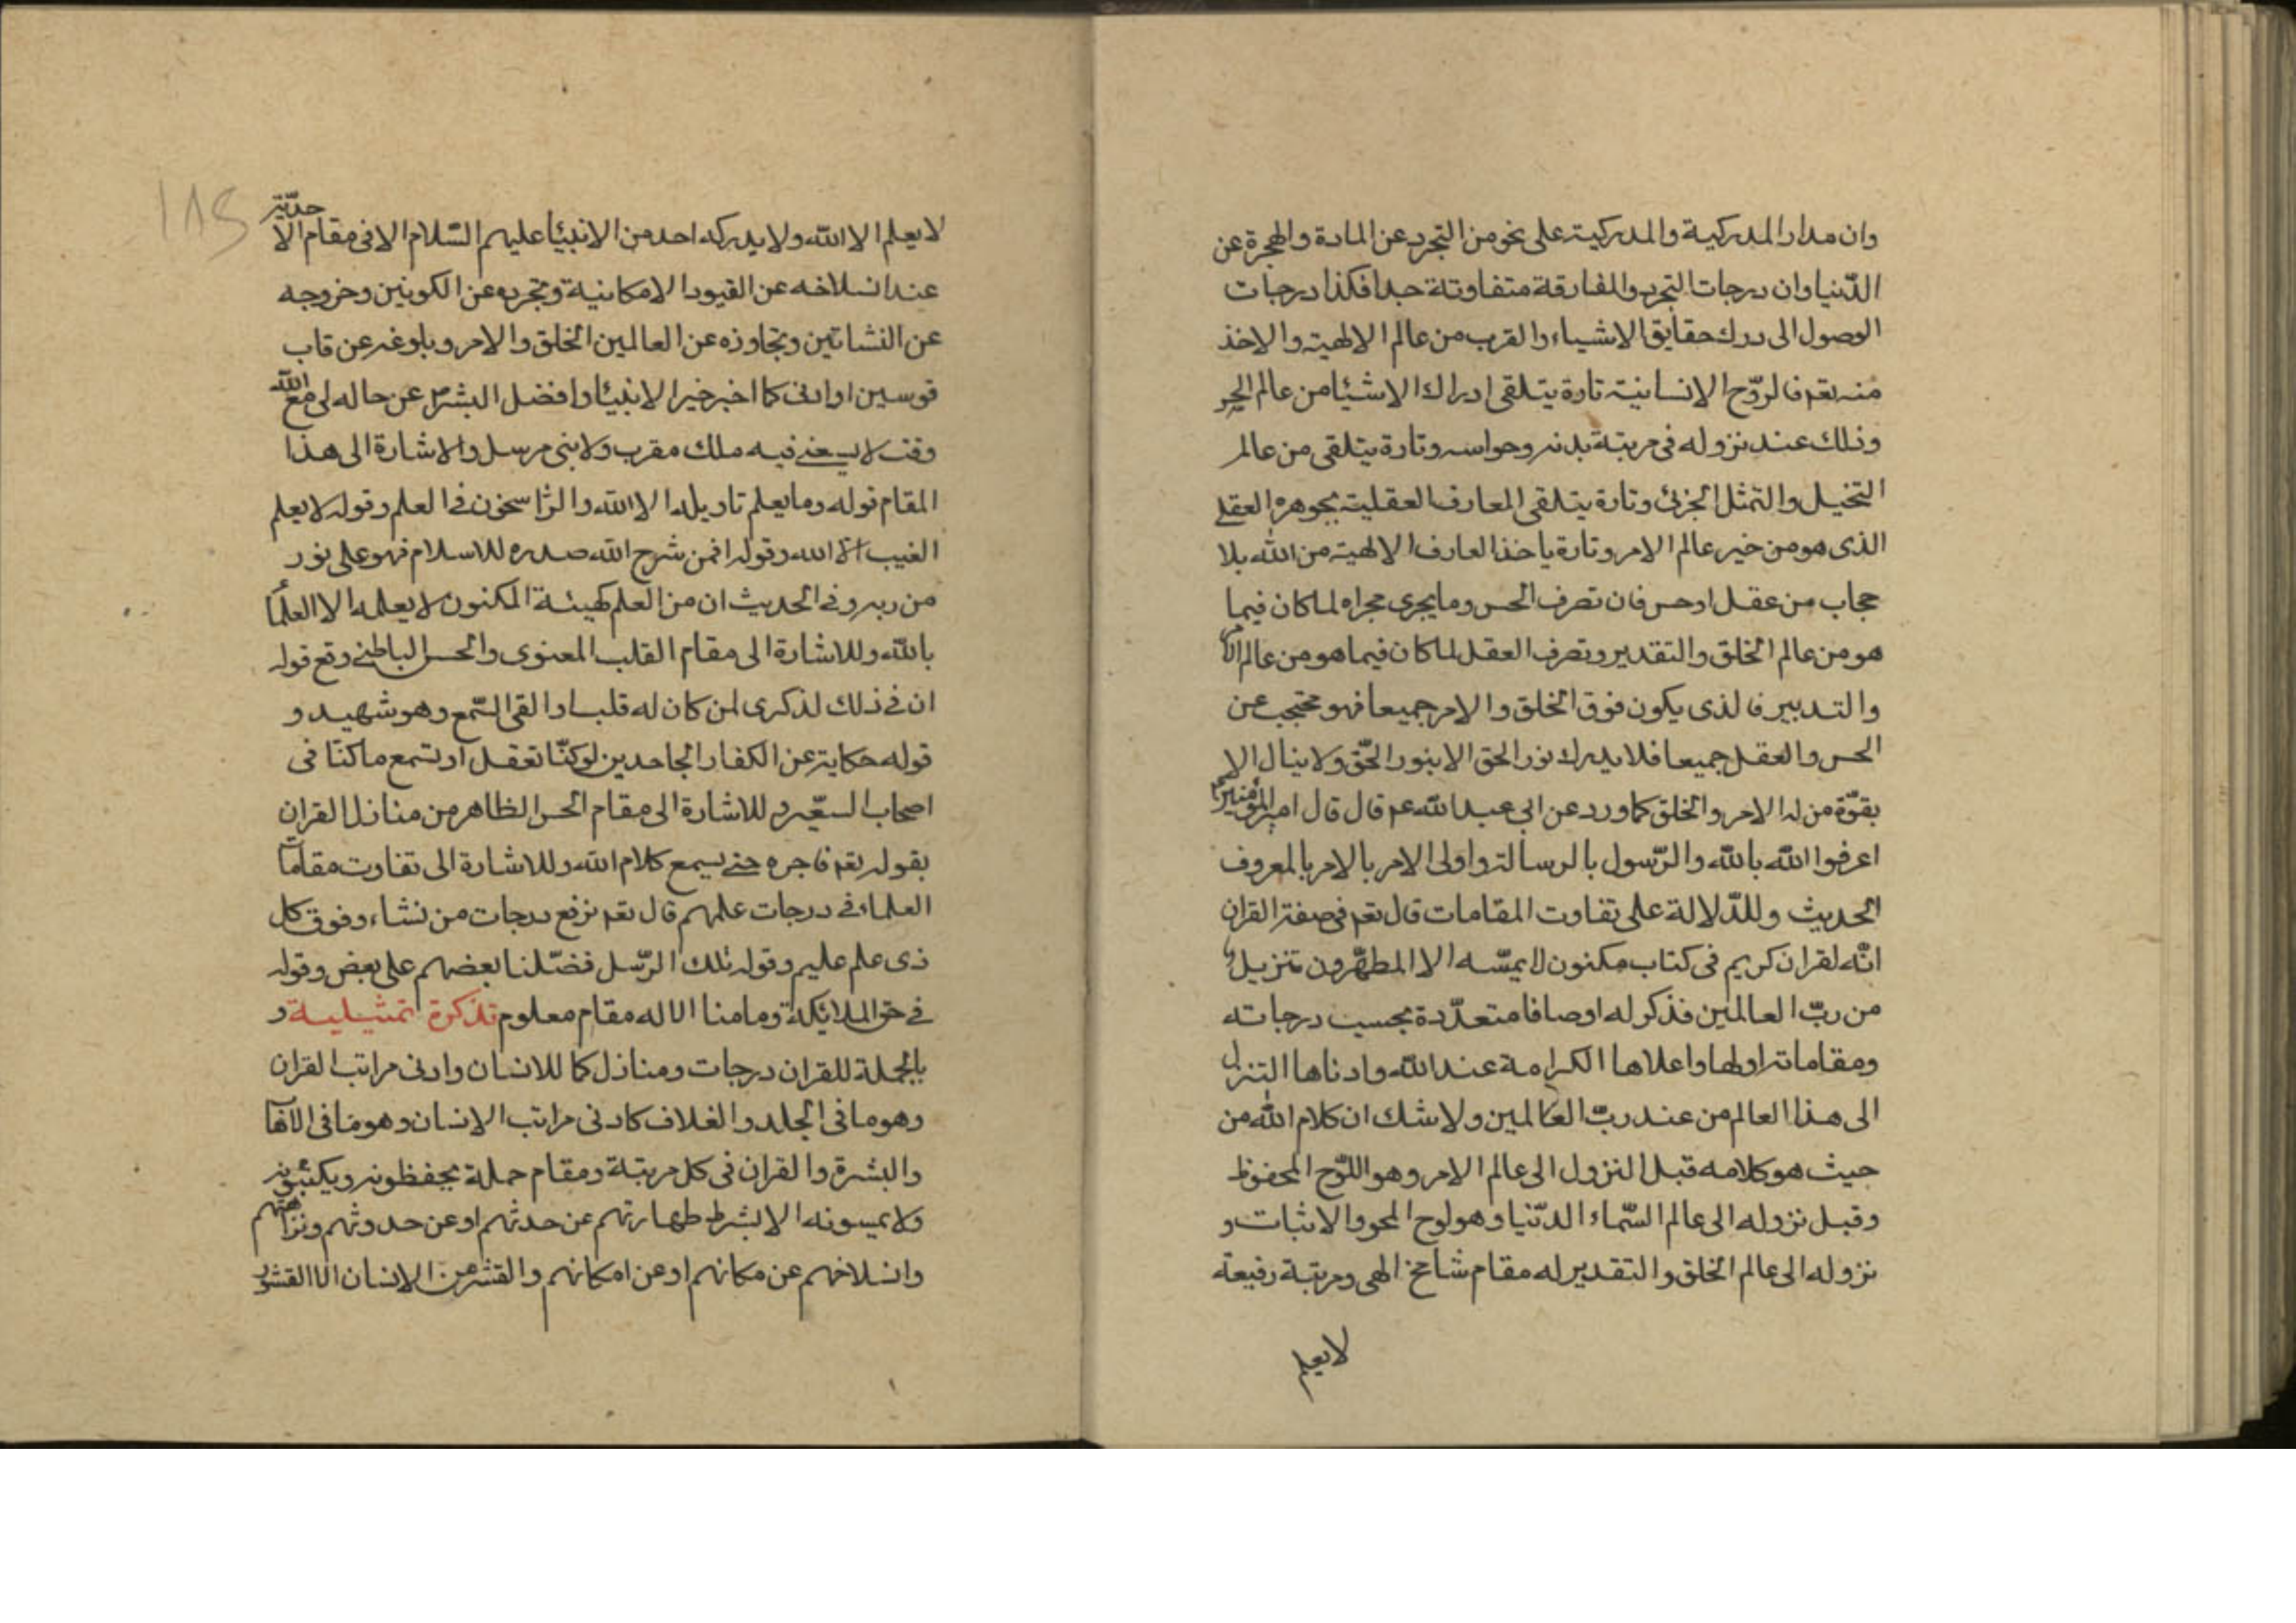 وان مدار المدركية والمدركية على نحو من التجرد عن المادة والهجرة عن
الدّنيا وان درجات التجرد والمفارقة متفاوتة جدا فكذا درجات
الوصول الى درك حقايق الاشياء والقرب من عالم الالهية والاخذ
منه تعم فالروّح الانسانية تارة يتلقى ادراك الاشيئا من عالم
وذلك عند نزوله فى مرتبة بدنه وحواسه وتارة يتلقى من عالم
التخيل والتمثل الجزئى وتارة يتلقى المعارف العقلية بجوهره العقلى
الذى هو من خير عالم الامر وتارة ياخذ المعارف الالهية من الله بلا
حجاب من عقل او حس فان تصرف الحس وما يجرى مجراه لما كان فيما
هو من عالم الخلق والتقدير وتصرف العقل لما كان فيما هو من عالم الامر
والتدبير فالذى يكون فوق الخلق والامر جميعا فهو محتجب عن
الحس والعقل جميعا فلا يدرك نور الحق الا بنور الحّق ولا ينال الا
بقوّة من له الامر والخلق كما ورد عن ابى عبد الله عم قال قال امير المؤمنين
اعرفوا الله بالله والرّسول بالرسالة واولى الامر بالامر بالمعروف
الحديث وللدّلالة على تفاوت المقامات قال تعم فى صفة القران
انّه لقران كريم فى كتاب مكنون لا يمسّه الا المطهّرون تنزيل
من ربّ العالمين فذكر له اوصافا متعدّدة بحسب درجاته
ومقاماته اولها واعلاها الكرامة عند الله وادناها التنزل
الى هذا العالم من عند ربّ العالمين ولا شك ان كلام الله من
حيث هو كلامه قبل النزول الى عالم الامر وهو اللوّح المحفوظ
وقبل نزوله الى عالم السّماء الدّنيا وهو لوح المحو والاثبات و
نزوله الى عالم الخلق والتقدير له مقام شامخ الهى ومرتبة رفيعة
لايعلم
١٨٢
لا يعلم الا الله ولا يدركه احد من الانبئا عليهم السّلام الا فى مقام الاحديّة
عند انسلاخه عن القيود الامكانية وتجرده عن الكونين وخروجه
عن النشاتين وتجاوزه عن العالمين الخلق والامر وبلوغه عن قاب
قوسين او ادنى كما اخبر خير الانبئا وافضل البشر عن حاله لى مع الله
وقت لا يسعنى فيه ملك مقرب ولا نبى مرسل والاشارة الى هذا
المقام قوله وما يعلم تاويله الا الله والرّاسخون فى العلم وقوله لا يعلم
الغيب الا الله وقوله افمن شرح الله صدره للاسلام فهو على نور
من ربه وفى الحديث ان من العلم كهيئة المكنون لا يعلمه الا العلمأ
بالله وللاشارة الى مقام القلب المعنوى والحس الباطنى وقع قوله
ان فى ذلك لذكرى لمن كان له قلب او القى السّمع وهو شهيد و
قوله حكاية عن الكفار الجاحدين لو كنّا نعقل او نسمع ما كنّا فى
اصحاب السعّير وللاشارة الى مقام الحس الظاهر من منازل القران
بقوله تعم فاجره حتى يسمع كلام الله وللاشارة الى تفاوت مقامات
العلماء فى درجات علمهم قال تعم نرفع درجات من نشاء وفوق كل
ذى علم عليم وقوله تلك الرّسل فضّلنا بعضهم على بعض وقوله
فى حق الملائكة وما منا الا له مقام معلوم تذكرة تمثيلية و
بالجملة للقران درجات ومنازل كما للانسان وادنى مراتب القران
وهو ما فى الجلد والغلاف كادنى مراتب الانسان وهو ما فى
والبشرة والقران فى كل مرتبة ومقام حملة يحفظونه ويكتبونه
ولا يمسونه الا بشرط طهارتهم عن حدثهم او عن حدوثهم ونزاهتهم
وانسلاخهم عن مكانهم او عن امكانهم والقشر من الانسان